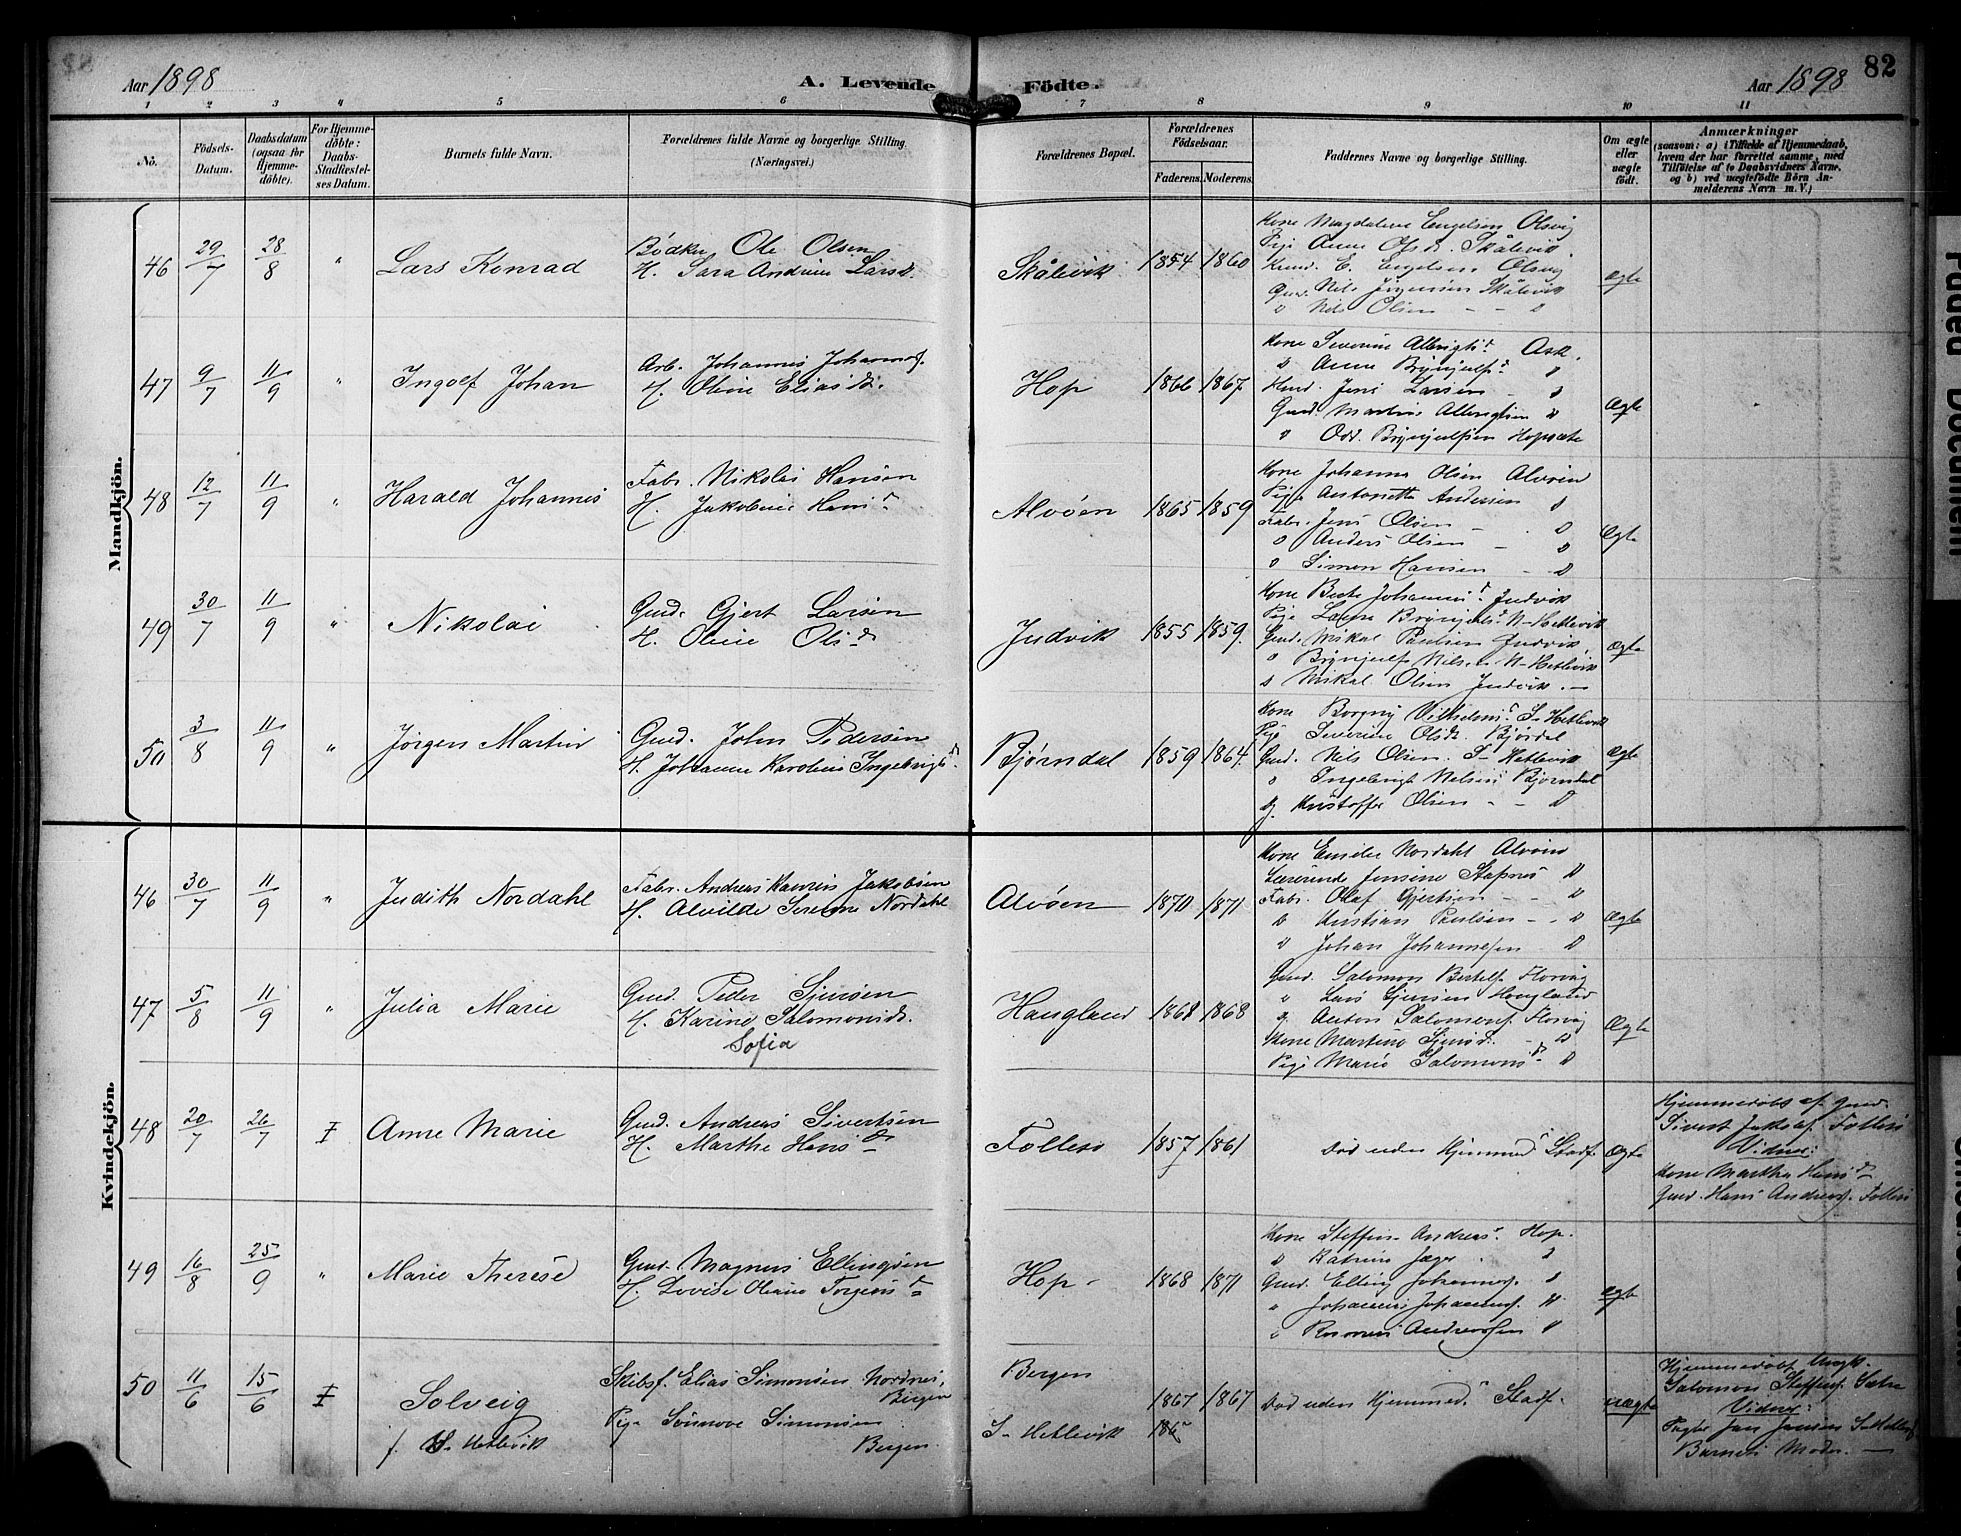 82
Aar 1898
A. Levende Födte.
Aar 1898
1 2 3 4 5 6 7 8 9 10 11
No.
Födsels-Datum.
Daabsdatum (ogsaa for Hjemme-döbte).
For Hjemme-döbte: Daabs-Stadfæstel-ses Datum.
Barnets fulde Navn.
Forældrenes fulde Navne og borgerlige Stilling. (Næringsvei.)
Forældrenes Bopæl.
Forældrenes Födselsaar.
Faderens. Moderens.
Faddernes Navne og borgerlige Stilling.
Om ægte eller uægte födt.
Anmærkninger
(saasom: a) i Tilfælde af Hjemmedaab, hvem der har forrettet samme, med Tilföielse af to Daabsvidners Navne, og b) ved uægtefödte Börn An-melderens Navn m. V.)
Mandkjön.
46 29/7 28/8 " Lars Konrad
Bødker Ole Olsen
H. Sara Andrine Larsd.
Skålevik 1854 1860
Kone Magdalene Engelsen Olsvig
Pige Anne Olsd. Skålevik
E. Engelsen Olsvig
Gmd. Nils Jørgensen Skålevik
" Nils Olsen - - "
Ægte
47 9/7 11/9 " Ingolf Johan
Arb. Johannes Johannesf.
H. Oline Eliasd.
Hop 1866 1867
Kone Severine Albrigtsd. Ask.
" Anne Brynjulfsd. "
Jens Larsen - "
Gmd. Martin Albrigtsen "
" Odd. Brynjulfsen Hopsæte
Ægte
48 12/7 11/9 " Harald Johannes
Fabr. Nikolai Hansen
H. Jakobine Hansd.
Alvøen 1865 1859
Kone Johanna Olsen Alvøen
Pige Antonette Andersen "
Fabr. Jens Olsen - "
" Anders Olsen - "
" Simon Hansen - "
Ægte
49 30/7 11/9 " Nikolai
Gmd. Gjert Larsen
H. Oline Olsd.
Judvik 1855 1859.
Kone Berte Johannesd. Judvik
Pige Brynjulfsd. N-Hetlevik
Gmd. Mikal Paulsen Judvik
" Brynjulf Nilsen N-Hetlevik
" Mikal Olsen Judvik. -
Ægte
50 3/8 11/9 " Jørgen Martin
Gmd. John Pedersen
H. Johanne Karoline Ingebrigtsd.
Bjørndal 1859 1864.
Kone Borgny Vilhelmsd. S-Hetlevik
Pige Severine Olsdr. Bjørdal
Gmd. Nils Olsen. S-Hetlevik
" Ingebrigt Nilsen Bjørndal
Kristoffer Olsen - - "
Ægte
Kvindekjön.
46 30/7 11/9 " Judith Nordahl
Fabr. Andreas Jakobsen
H. Alvilde Serene Nordahl
Alvøen 1870 1871
Kone Emilie Nordahl Alvøen
Lærerinde Jensine Stapnes "
Fabr. Olaf Gjertsen - - "
" Kristian Paulsen - - "
" Johan Johannesen "
Ægte
47 5/8 11/9 " Julia Marie
Gmd. Peder Sjursen
H. Karine Salomonsd.
Sofia
Haugland 1868 1868
Gmd. Salomon Bertelf. Florvåg
" Lars Sjursen Haugland
Anton Salomonf. Florvåg
Kone Martine Sjursd. - "
Pige Marie Salomonsd. "
Ægte
48 20/7 26/7 Anne Marie
Gmd. Andreas Sivertsen
H. Marthe Hansd.
Follesø 1857 1861
Død uden Hjemmed. Stadf.
Ægte
Hjemmedøbt af Gmd.
Sivert Follesø
Vidner:
Kone Martha Hansd.
Gmd. Hans Andreasf. Follesø
49 16/8 25/9 " Marie Therese
Gmd. Magnus Ellingsen
H. Lovise Oliane Torgersd.
Hop - 1868 1871
Kone Steffine Andreasd. Hop.
" Katrine Jæger "
Gmd. Elling Johannesf. "
" Johannes Johannesf. "
" Rasmus Andreassen "
Ægte
50 11/6 15/6 Solveig
f. S. Hetlevik
Skibsf. Elias Simonsen Nordnes, Bergen
Pige Sønnove Simonsen
Bergen.
Bergen
S-Hetlevik
1867 1867
186
Død uden Hjemmed. Stadf.
uægte
Hjemmedøbt Ungk.
Salomon Steffensf. Sætre
Vidner:
Jan Jansen S-Hetlevik
Barnets Moder. -
Faded Document